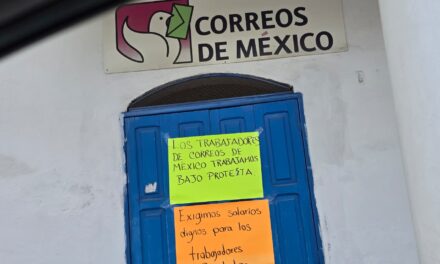 CORREOS
DE MÉXICO
LOS TRABAJADORES
DE CORREOS DE
MÉXICO TRABAJAMOS
BAJO PROTESTA
Exigimos salarios
dignos para los
trabajadores